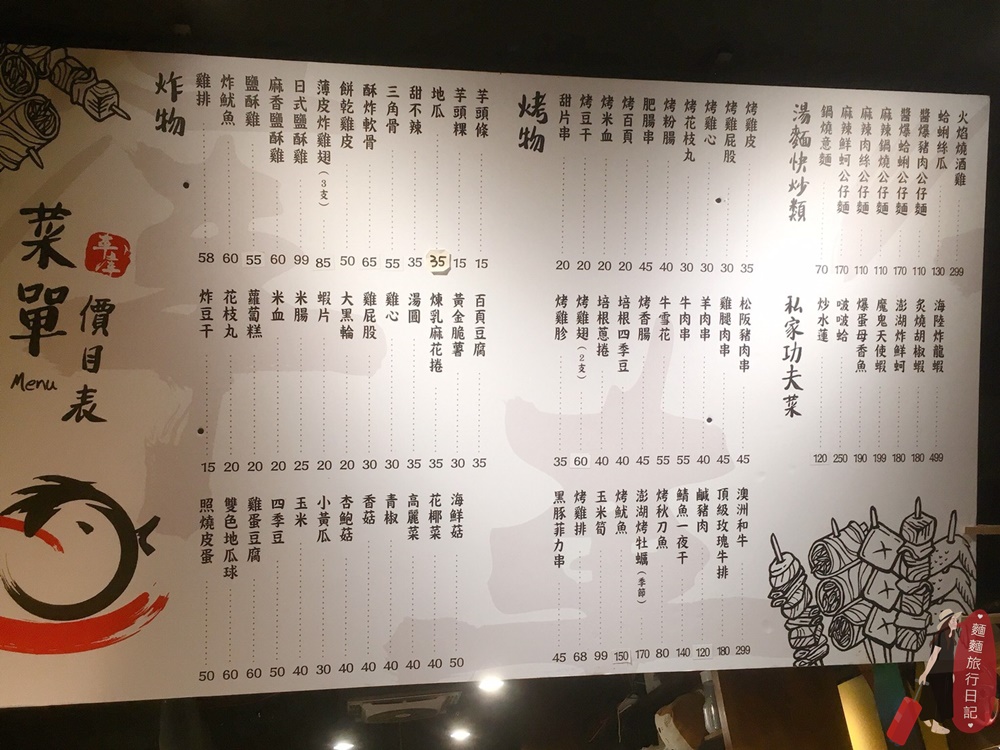 菜單
價目表
Menu
炸物
雞排 58
炸魷魚 60
鹽酥雞 55
麻香鹽酥雞 60
日式鹽酥雞 99
薄皮炸雞翅(3支) 85
餅乾雞皮 50
酥炸軟骨 65
三角骨 55
甜不辣 35
地瓜 35
芋頭粿 15
芋頭條 15
炸豆干 15
花枝丸 20
蘿蔔糕 20
米血 20
米腸 25
蝦片 20
大黑輪 20
雞屁股 30
雞心 30
湯圓 35
煉乳麻花捲 35
黃金脆薯 30
百頁豆腐 35
照燒皮蛋 50
雙色地瓜球 60
雞蛋豆腐 60
四季豆 50
玉米 40
小黃瓜 30
杏鮑菇 40
香菇 40
青椒 40
高麗菜 40
花椰菜 40
海鮮菇 50
烤物
甜片串 20
烤豆干 20
烤米血 20
烤百頁 20
肥腸串 45
烤粉腸 40
烤花枝丸 30
烤雞心 30
烤雞屁股 30
烤雞皮 35
烤雞胗 35
烤雞翅(2支) 60
培根蔥捲 40
培根四季豆 40
烤香腸 45
牛雪花 55
牛肉串 55
羊肉串 40
雞腿肉串 45
松阪豬肉串 45
黑豚菲力串 45
烤雞排 68
玉米筍 99
烤魷魚 150
澎湖烤牡蠣(季節) 170
烤秋刀魚 80
鯖魚一夜干 140
鹹豬肉 120
頂級玫瑰牛排 180
澳洲和牛 299
湯麵快炒類
鍋燒意麵 70
麻辣鮮蚵公仔麵 170
麻辣肉絲公仔麵 110
麻辣鍋燒公仔麵 110
醬爆蛤蜊公仔麵 170
醬爆豬肉公仔麵 110
蛤蜊絲瓜 130
火焰燒酒雞 299
私家功夫菜
炒水蓮 120
啵啵蛤 250
爆蛋母香魚 190
魔鬼天使蝦 199
澎湖炸鮮蚵 180
炙燒胡椒蝦 180
海陸炸龍蝦 499
麵麵旅行日記